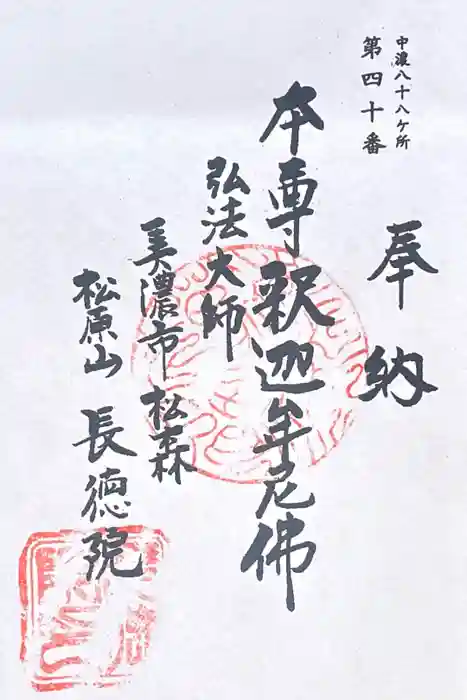 中濃八十八ヶ所
第四十番
奉納
本尊釈迦牟尼佛
弘法大師
美濃市松森
松原山長徳院